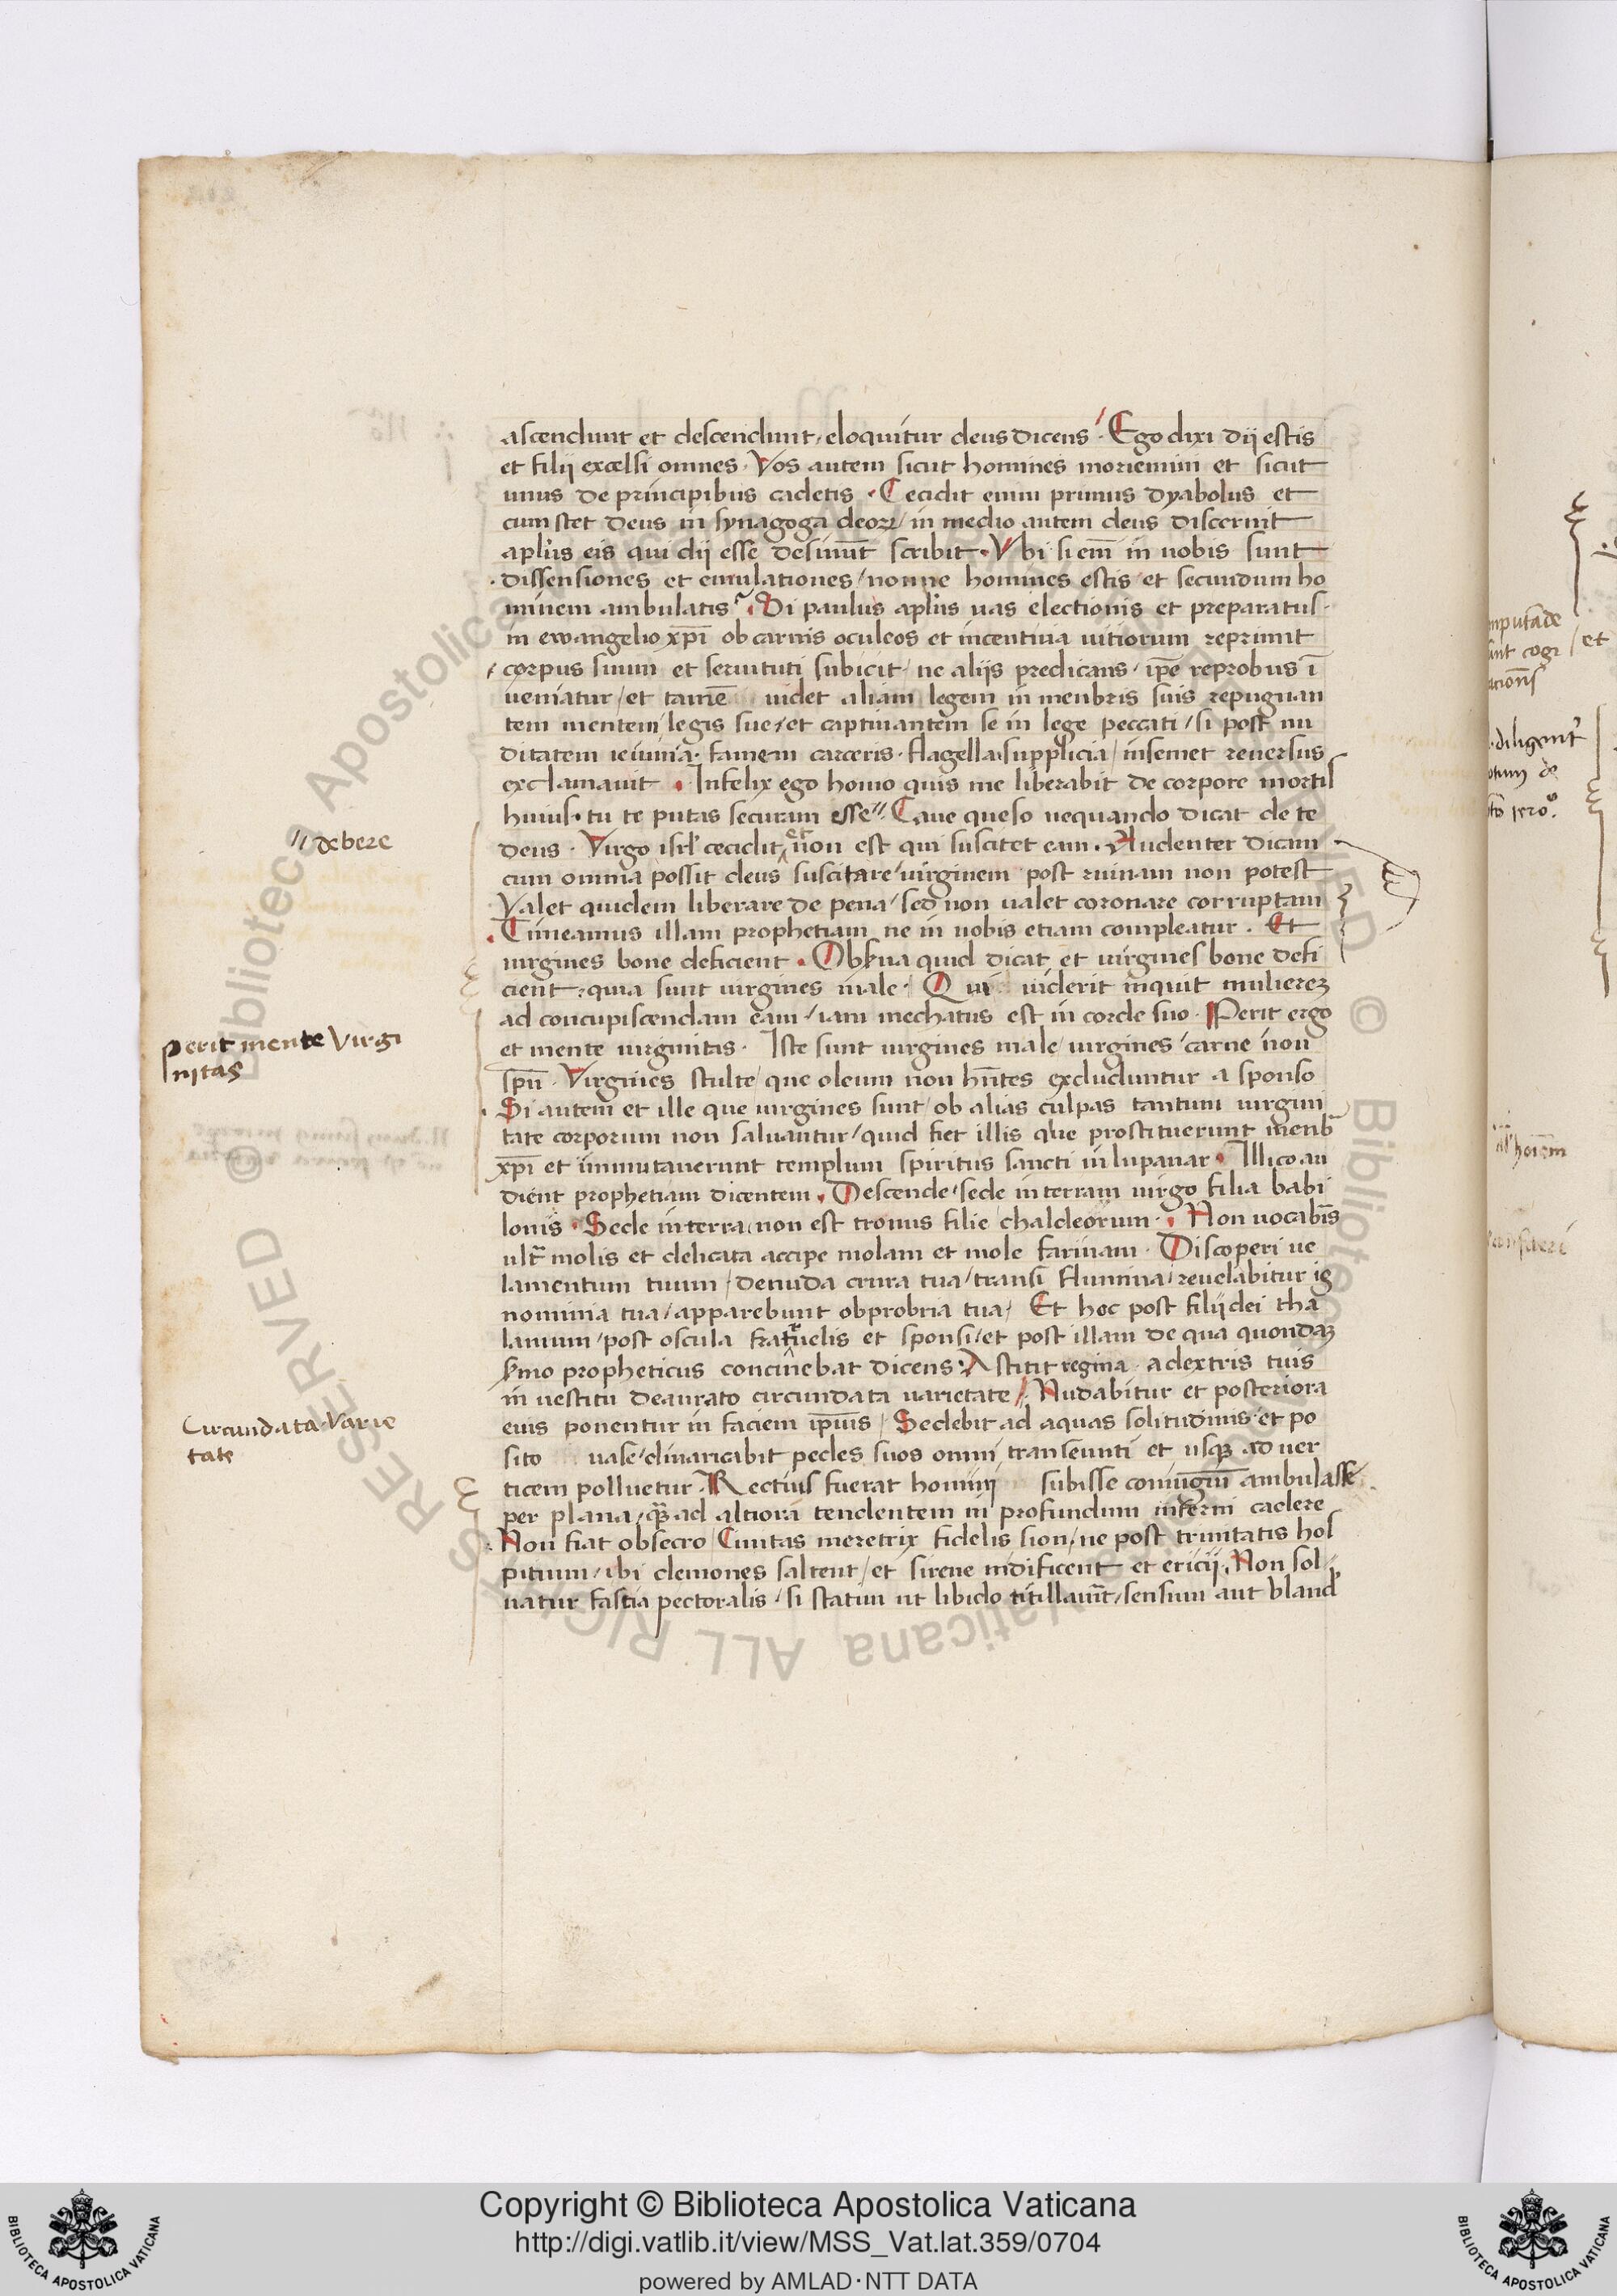 ascendunt et descendunt, eloquitur deus dicens. Ego dixi dij estis
et filij excelsi omnes. Vos autem sicut homines moriemini et sicut
unus de principibus cadetis. Cecidit enim primus dyabolus et
cum stet deus in synagoga deoꝝ / in medio autem deus discernit
apl's eis qui dij esse desinūt scribit. Vbi si em̄ in uobis sunt
dissensiones et emulationes / nonne homines estis et secundum ho
minem ambulatis? Si paulus apl's uas electionis et preparatus
in ewangelio xp̄i ob carnis oculeos et incentiuia uitiorum reprimit
corpus suum et seruituti subicit, ne alijs predicans, ip̄e reprobus ī
ueniatur / et tamē uidet aliam legem in menbris suis repugnan
tem mentem legis sue / et captiuantem se in lege peccati / si post nu
ditatem ieiunia. famem carceris. flagella supplicia / insemet reuersus
exclamauit. Infelix ego homo quis me liberabit de corpore mortis
huius. tu te putas securam esse〃. Caue queso nequando dicat de te
deus. Virgo isrl' cecidit et non est qui suscitet eam. Audenter dicam
cum omnia possit deus suscitare uirginem post ruinam non potest
Valet quidem liberare de pena / sed non ualet coronare corruptam
Timeamus illam prophetiam ne in nobis etiam compleatur. Et
uirgines bone deficient. Obserua quid dicat et uirgines bone defi
cient. quia sunt uirgines male. Qui uiderit inquit muliereꝫ
ad concupiscendam eam / iam mechatus est in corde suo. Perit ergo
et mente uirginitas. Iste sunt uirgines male / uirgines carne non
spū. Virgines stulte / que oleum non hn̄tes excluduntur a sponso
Si autem et ille que uirgines sunt / ob alias culpas tantum uirgini
tate corporum non saluantur / quid fiet illis que prostituerunt menb
xp̄i et immutauerunt templum spiritus sancti in lupanar. Illico au
dient prophetiam dicentem. Descende / sede in terram uirgo filia babi
lonis. Sede in terra / non est tronus filie chaldeorum. Non uocabis
ult̄ molis et delicata accipe molam et mole farinam. Discoperi ue
lamentum tuum / denuda crura tua / transi flumina / reuelabitur ig
nominia tua / apparebunt obprobria tua / Et hoc post filij dei tha
lamum / post oscula fratruelis et sponsi / et post illam de qua quondaꝫ
sermo propheticus concinebat dicens. Astitit regina adextris tuis
in uestitu deaurato circundata uarietate // Nudabitur et posteriora
eius ponentur in faciem ip̄ius / Sedebit ad aquas solitudinis et po
sito uase / diuaricabit pedes suos omni transeunti et usqꝫ ad uer
ticem polluetur. Rectius fuerat homini subisse coniugiū ambulasse
per plana / qꝫ ad altiora tendentem in profundum inferni cadere
Non fiat obsecro Ciuitas meretrix fidelis sion / ne post trinitatis hos
pitium / ibi demones saltent / et sirene nidificent et ericij. Non sol
uatur fascia pectoralis / si statim ut libido titillauit̄ / sensum aut bland
// debere
perit mente virgi
nitas
Circundata varie
tate
diligent
Copyright © Biblioteca Apostolica Vaticana
http://digi.vatlib.it/view/MSS_Vat.lat.359/0704
powered by AMLAD·NTT DATA
BIBLIOTECA APOSTOLICA VATICANA
BIBLIOTECA APOSTOLICA VATICANA